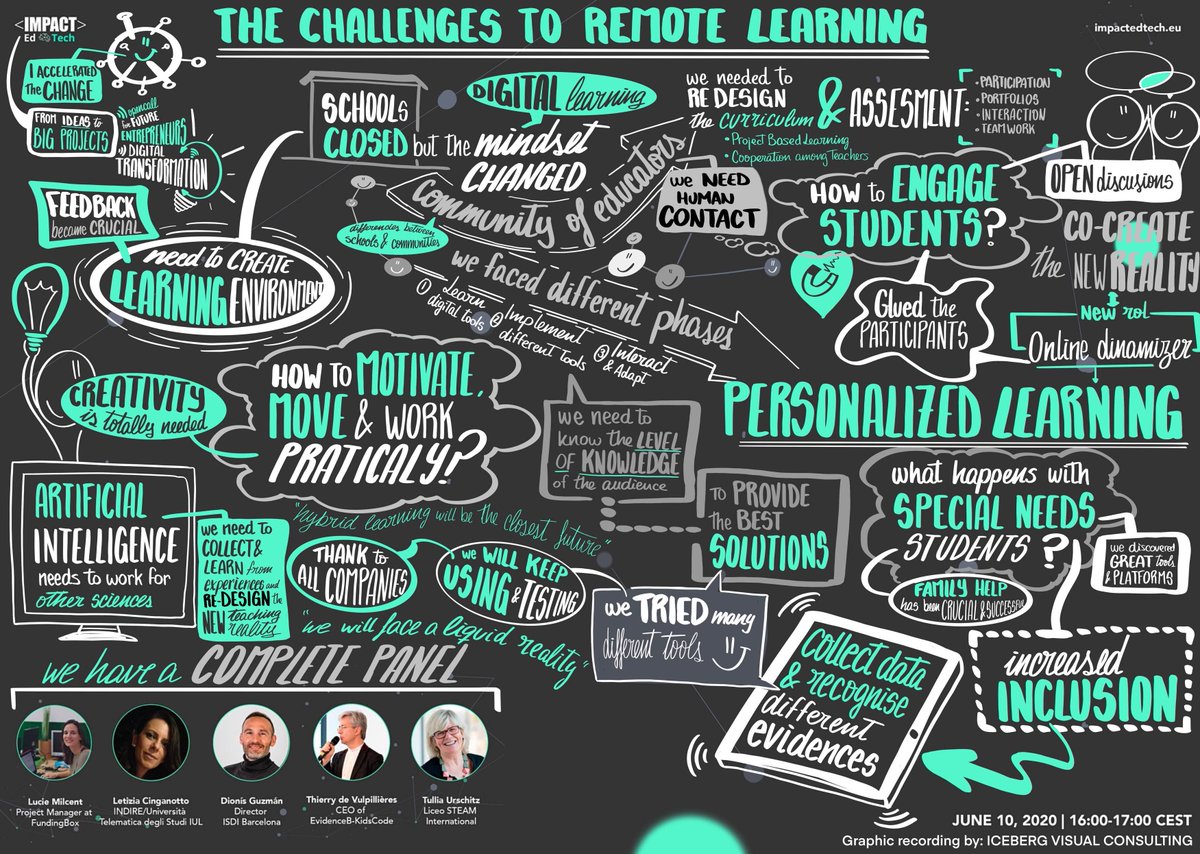 <IMPACT>
Ed Tech
THE CHALLENGES TO REMOTE LEARNING
impactedtech.eu
I ACCELERATED
The CHANGE
FROM IDEAS to
BIG PROJECTS
opencall
for FUTURE
ENTREPRENEURS
DIGITAL
TRANSFORMATION
FEEDBACK
became CRUCIAL
need to CREATE
LEARNING ENVIRONMENT
SCHOOLS
CLOSED
but the mindset
CHANGED
DIGITAL learning
community of educators
differencies between
schools & communities
we faced different phases
① Learn
digital tools
② Implement
different Tools
③ Interact
& Adapt
we needed to
RE DESIGN
the curriculum
• Project Based Learning
• Cooperation among Teachers
& ASSESMENT:
• PARTICIPATION
• PORTFOLIOS
• INTERACTION
• TEAMWORK
we NEED
HUMAN
CONTACT
HOW to ENGAGE
STUDENTS?
OPEN discusions
CO-CREATE
the NEW REALITY
Glued the
PARTICIPANTS
New rol
Online dinamizer
CREATIVITY
is totally needed
HOW TO MOTIVATE,
MOVE & WORK
PRATICALY?
we need to
know the LEVEL
OF KNOWLEDGE
of the audience
TO PROVIDE
the BEST
SOLUTIONS
PERSONALIZED LEARNING
what happens with
SPECIAL NEEDS
STUDENTS?
FAMILY HELP
has been CRUCIAL & SUCCESSFUL
we discovered
GREAT tools
& PLATFORMS
increased
INCLUSION
ARTIFICIAL
INTELLIGENCE
needs to work for
other sciences
we need to
COLLECT &
LEARN from
experiences and
RE-DESIGN the
NEW teaching
reality
"hybrid learning will be the closest future"
THANK to
ALL COMPANIES
we WILL KEEP
USING & TESTING
"we will face a liquid reality"
we TRIED many
different tools
collect data
& recognise
different
evidences
we have a COMPLETE PANEL
Lucie Milcent
Project Manager at
FundingBox
Letizia Cinganotto
INDIRE/Università
Telematica degli Studi IUL
Dionís Guzmán
Director
ISDI Barcelona
Thierry de Vulpillières
CEO of
EvidenceB-KidsCode
Tullia Urschitz
Liceo STEAM
International
JUNE 10, 2020 | 16:00-17:00 CEST
Graphic recording by: ICEBERG VISUAL CONSULTING